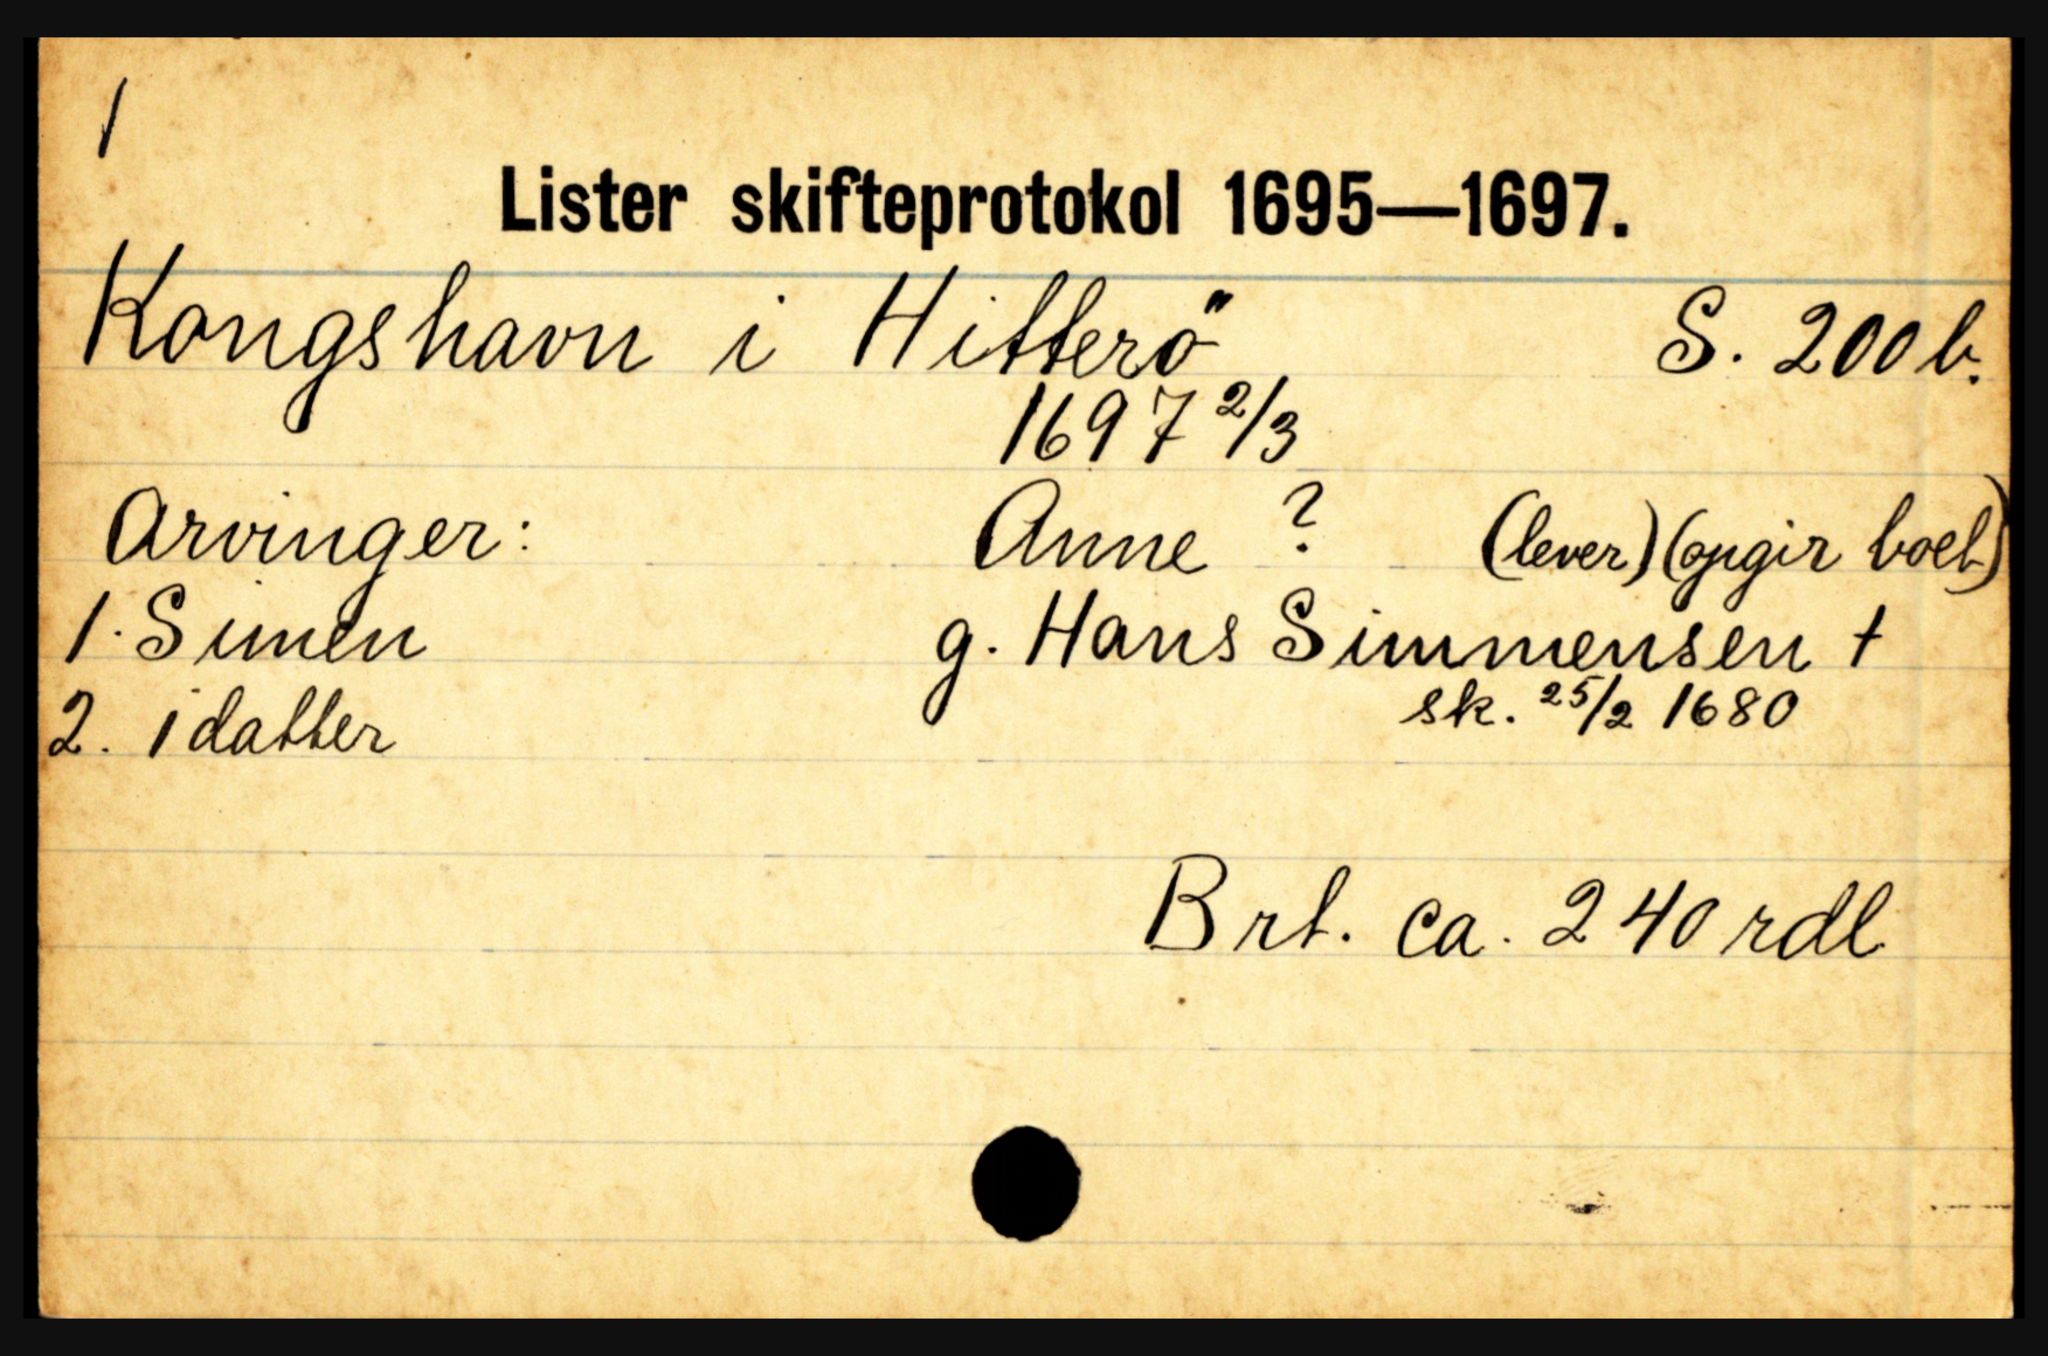 1
Lister skifteprotokol 1695—1697.
Kongshavn i Hitterö S. 200 b.
1697 2/3
Arvinger: Anne ? (lever) (opgir boet)
1. Simen g. Hans Simmensen †
2. 1 datter sk. 25/2 1680
Brt. ca. 240 rdl